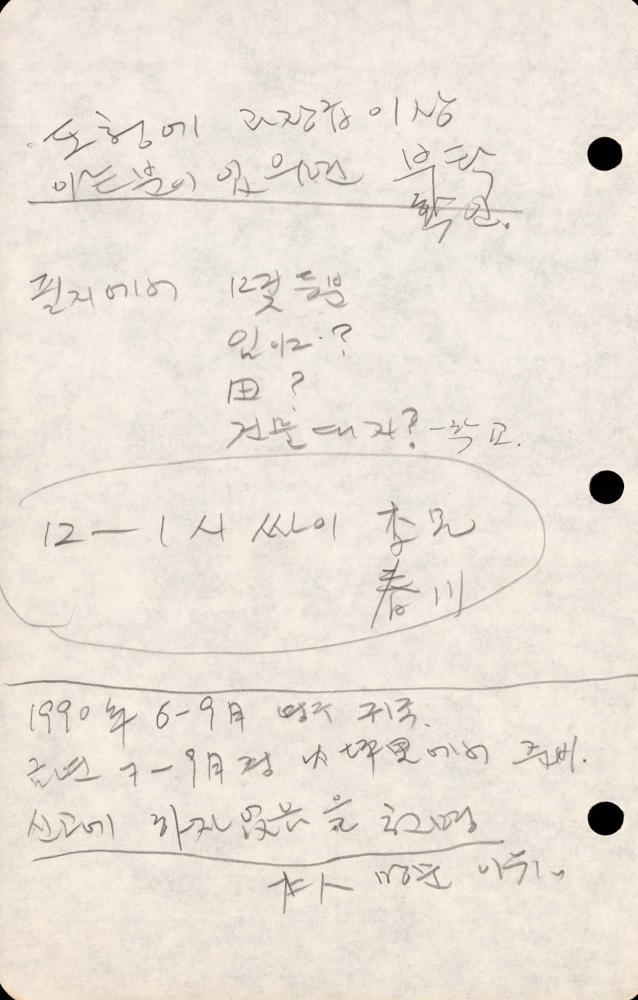 도청에 과장급 이상
아는 분이 있으면 부탁
확인.
필지에서 12월 등분
임야?
田?
건물 대지? - 학교.
12 - 1시 싸이 李兄
春川
1990年 6-9月 영주 귀국.
금년 7-9月경 內坪里에서 준비.
신고에 하지 않음을 설명
本人